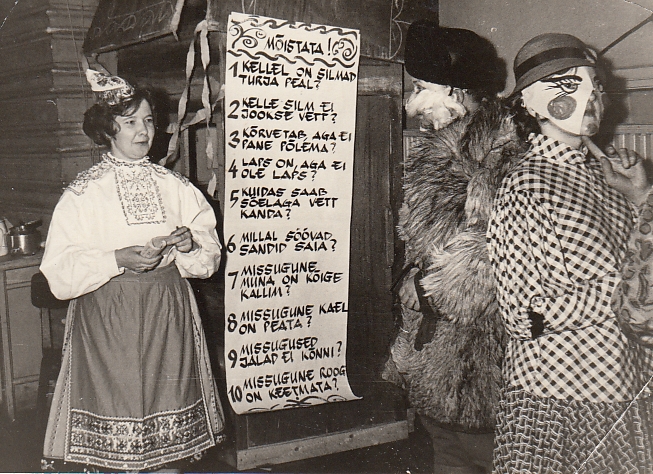 MÕISTATA!
1 KELLEL ON SILMAD
TURJA PEAL?
2 KELLE SILM EI
JOOKSE VETT?
3 KÕRVETAB, AGA EI
PANE PÕLEMA?
4 LAPS ON, AGA EI
OLE LAPS?
5 KUIDAS SAAB
SÕELAGA VETT
KANDA?
6 MILLAL SÖÖVAD
SANDID SAIA?
7 MISSUGUNE
MUNA ON KÕIGE
KALLIM?
8 MISSUGUNE KAEL
ON PEATA?
9 MISSUGUSED
JALAD EI KÕNNI?
10 MISSUGUNE ROOG
ON KEETMATA?